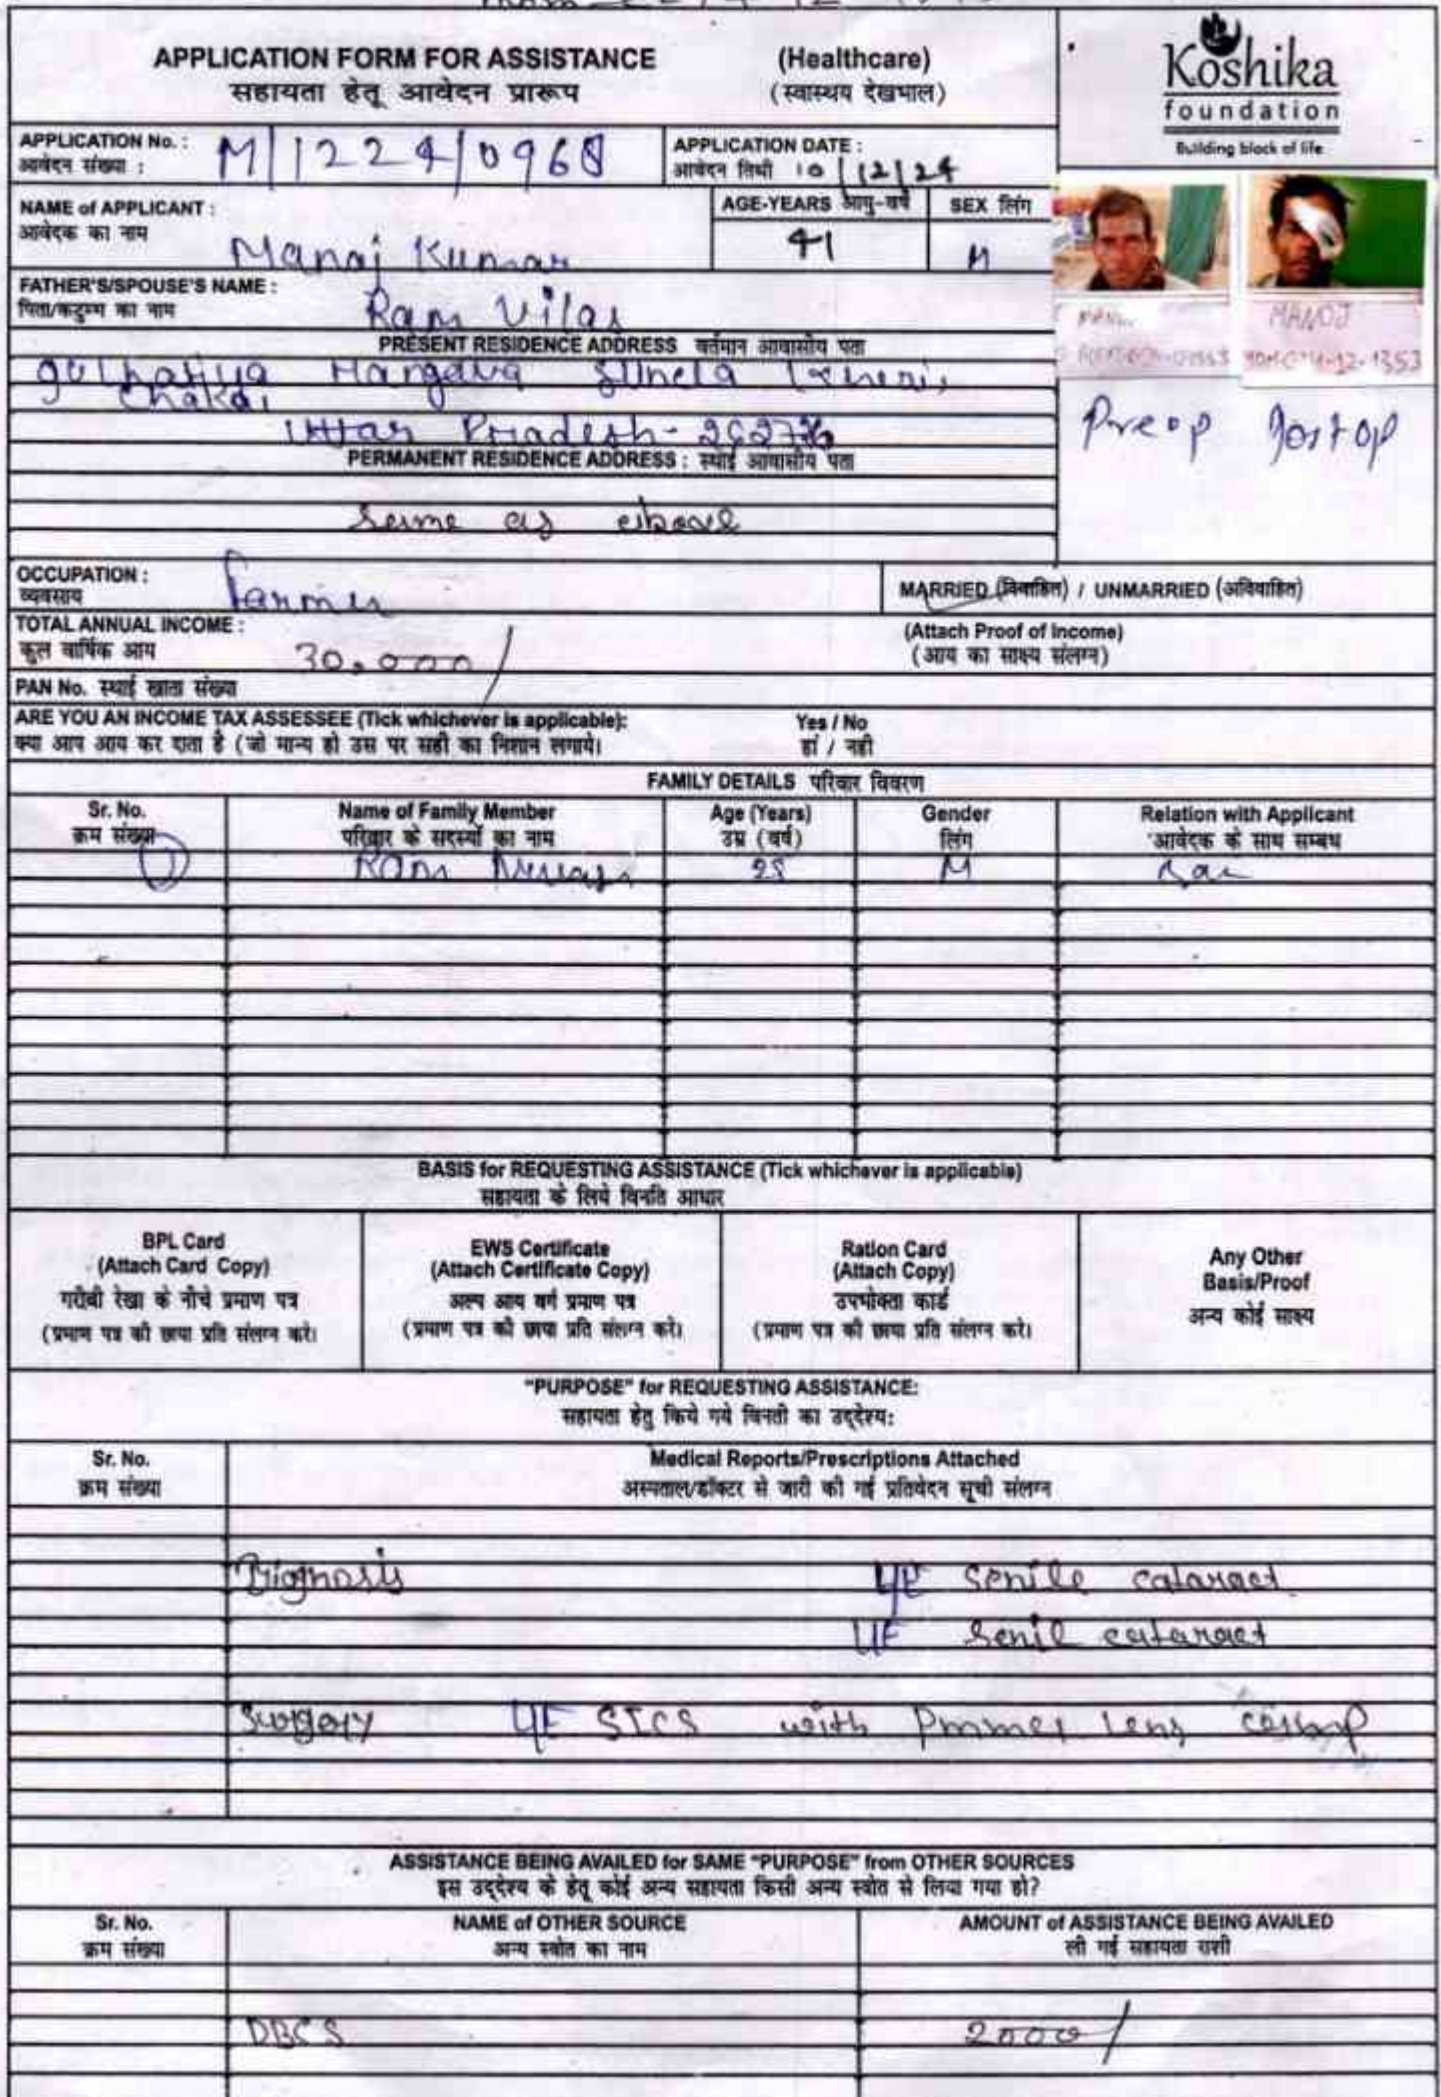 APPLICATION FORM FOR ASSISTANCE (Healthcare)
सहायता हेतू आवेदन प्रारूप (स्वास्थय देखभाल)
Koshika
foundation
Building block of life
APPLICATION No. : M/1224/0968
आवेदन संख्या :
APPLICATION DATE :
आवेदन तिथी 10/12/24
NAME of APPLICANT :
आवेदक का नाम Manoj Kumar
AGE-YEARS आयु-वर्ष 41
SEX लिंग M
FATHER'S/SPOUSE'S NAME :
पिता/कटुम्ब का नाम Ram Vilas
MANOJ
Preop Postop
PRESENT RESIDENCE ADDRESS वर्तमान आवासीय पता
Uttar Pradesh-
PERMANENT RESIDENCE ADDRESS : स्थाई आवासीय पता
Same as above
OCCUPATION :
व्यवसाय Farmer
MARRIED (विवाहित) / UNMARRIED (अविवाहित)
TOTAL ANNUAL INCOME :
कुल वार्षिक आय 30,000/
(Attach Proof of Income)
(आय का साक्ष्य संलग्न)
PAN No. स्थाई खाता संख्या
ARE YOU AN INCOME TAX ASSESSEE (Tick whichever is applicable): Yes / No
क्या आप आय कर दाता है (जो मान्य हो उस पर सही का निशान लगाये। हां / नही
FAMILY DETAILS परिवार विवरण
Sr. No. Name of Family Member Age (Years) Gender Relation with Applicant
क्रम संख्या परिवार के सदस्यों का नाम उम्र (वर्ष) लिंग आवेदक के साथ सम्बध
1 Ram 28 M
BASIS for REQUESTING ASSISTANCE (Tick whichever is applicable)
सहायता के लिये विनति आधार
BPL Card
(Attach Card Copy)
गरीबी रेखा के नीचे प्रमाण पत्र
(प्रमाण पत्र की छाया प्रति संलग्न करे।
EWS Certificate
(Attach Certificate Copy)
अल्प आय वर्ग प्रमाण पत्र
(प्रमाण पत्र की छाया प्रति संलग्न करे।
Ration Card
(Attach Copy)
उपभोक्ता कार्ड
(प्रमाण पत्र की छाया प्रति संलग्न करे।
Any Other
Basis/Proof
अन्य कोई साक्ष्य
"PURPOSE" for REQUESTING ASSISTANCE:
सहायता हेतु किये गये विनती का उद्देश्य:
Sr. No. Medical Reports/Prescriptions Attached
क्रम संख्या अस्पताल/डॉक्टर से जारी की गई प्रतिवेदन सूची संलग्न
Diagnosis senile cataract
Senil cataract
Surgery SICS with Lens
ASSISTANCE BEING AVAILED for SAME "PURPOSE" from OTHER SOURCES
इस उद्देश्य के हेतू कोई अन्य सहायता किसी अन्य स्त्रोत से लिया गया हो?
Sr. No. NAME of OTHER SOURCE AMOUNT of ASSISTANCE BEING AVAILED
क्रम संख्या अन्य स्त्रोत का नाम ली गई सहायता राशी
DBCS 2000/